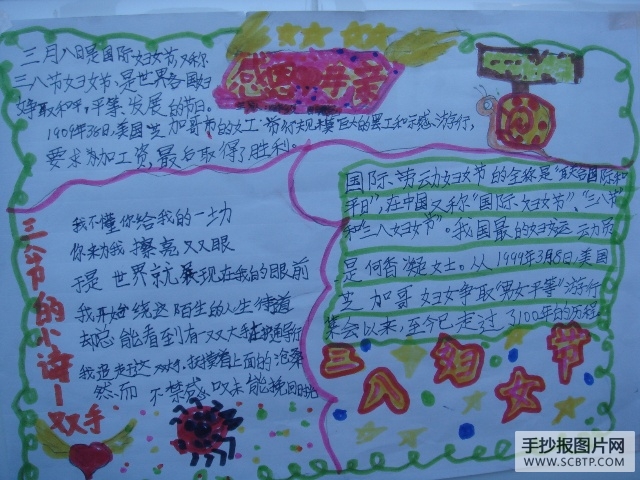 感恩母亲
三月八日是国际妇女节,又称
三八节妇女节,是世界各国妇
争取和平,平等,发展的节日。
1909年3月8日,美国芝加哥市的女工,举行规模巨大的罢工和示威游行,
要求增加工资,最后取得了胜利。
三八节的小诗—双手
我不懂你给我的一切
你来为我擦亮双眼
于是世界就展现在我的眼前
我开始绕这陌生的人生街道
却总能看到有一双大手
我
然而不禁感叹
国际劳动妇女节的全称是"联合国际和
平日",在中国又称"国际妇女节"、"三八节"
和"三八妇女节"。我国最的妇运动员
是何香凝女士。从1999年3月8日,美国
芝加哥妇女争取"男女平等"游行
集会以来,至今已走过了100年的历程
三八妇女节
手抄报图片网
WWW.SCBTP.COM